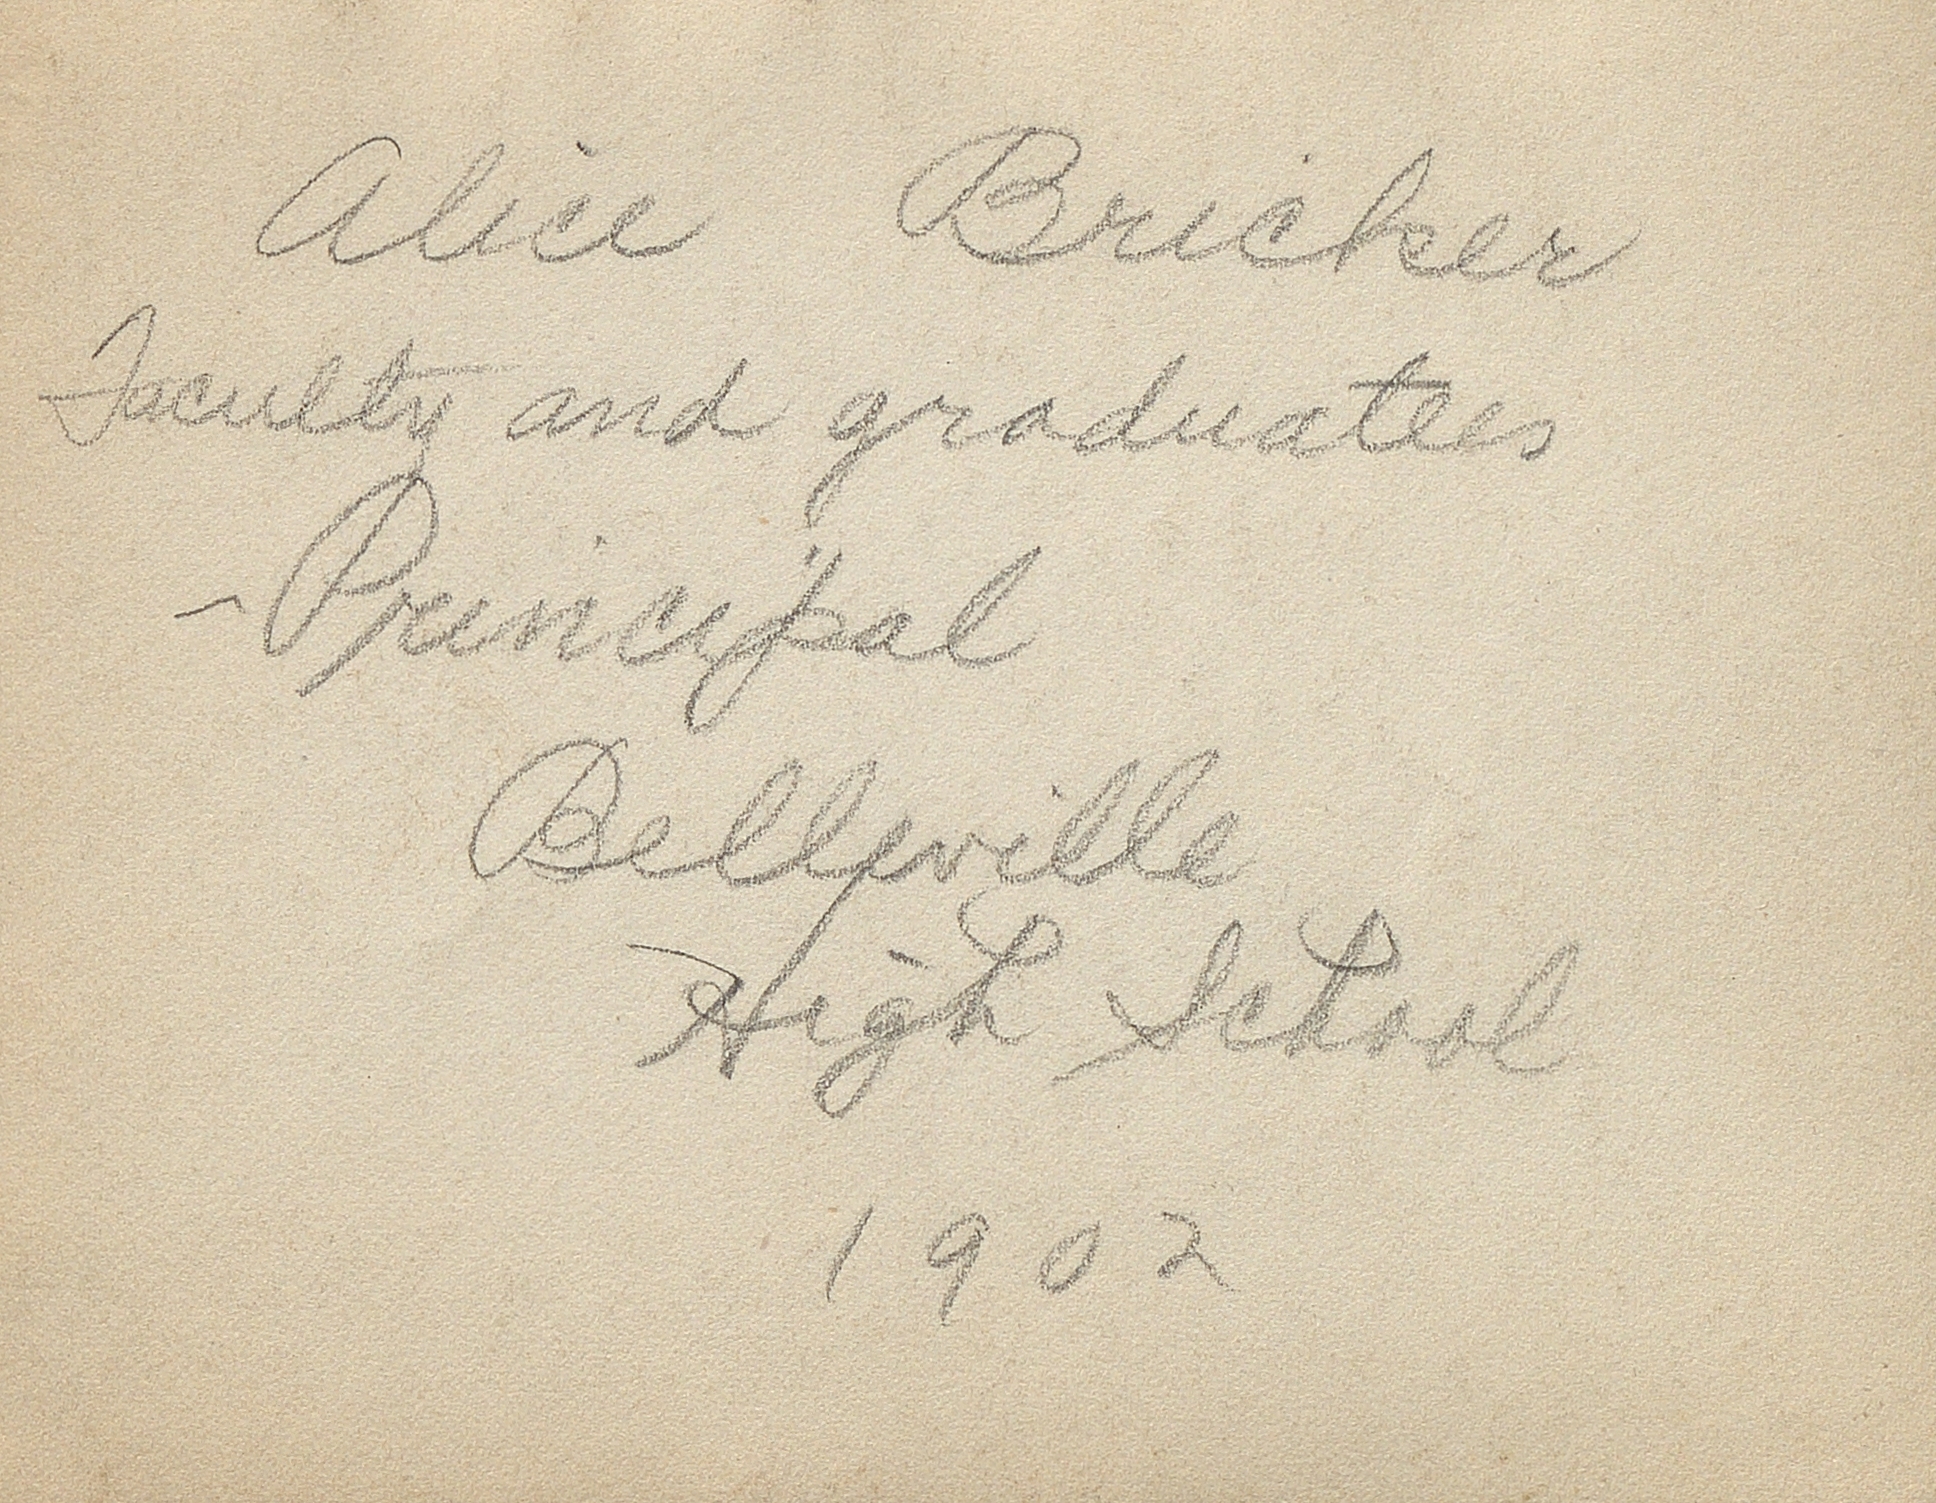 Alice Bricker
Faculty and graduatees
- Principal
Belleville
High School
1902